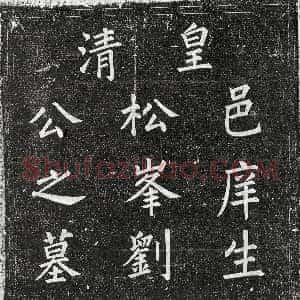 皇清
邑庠生
松峯劉
公之墓